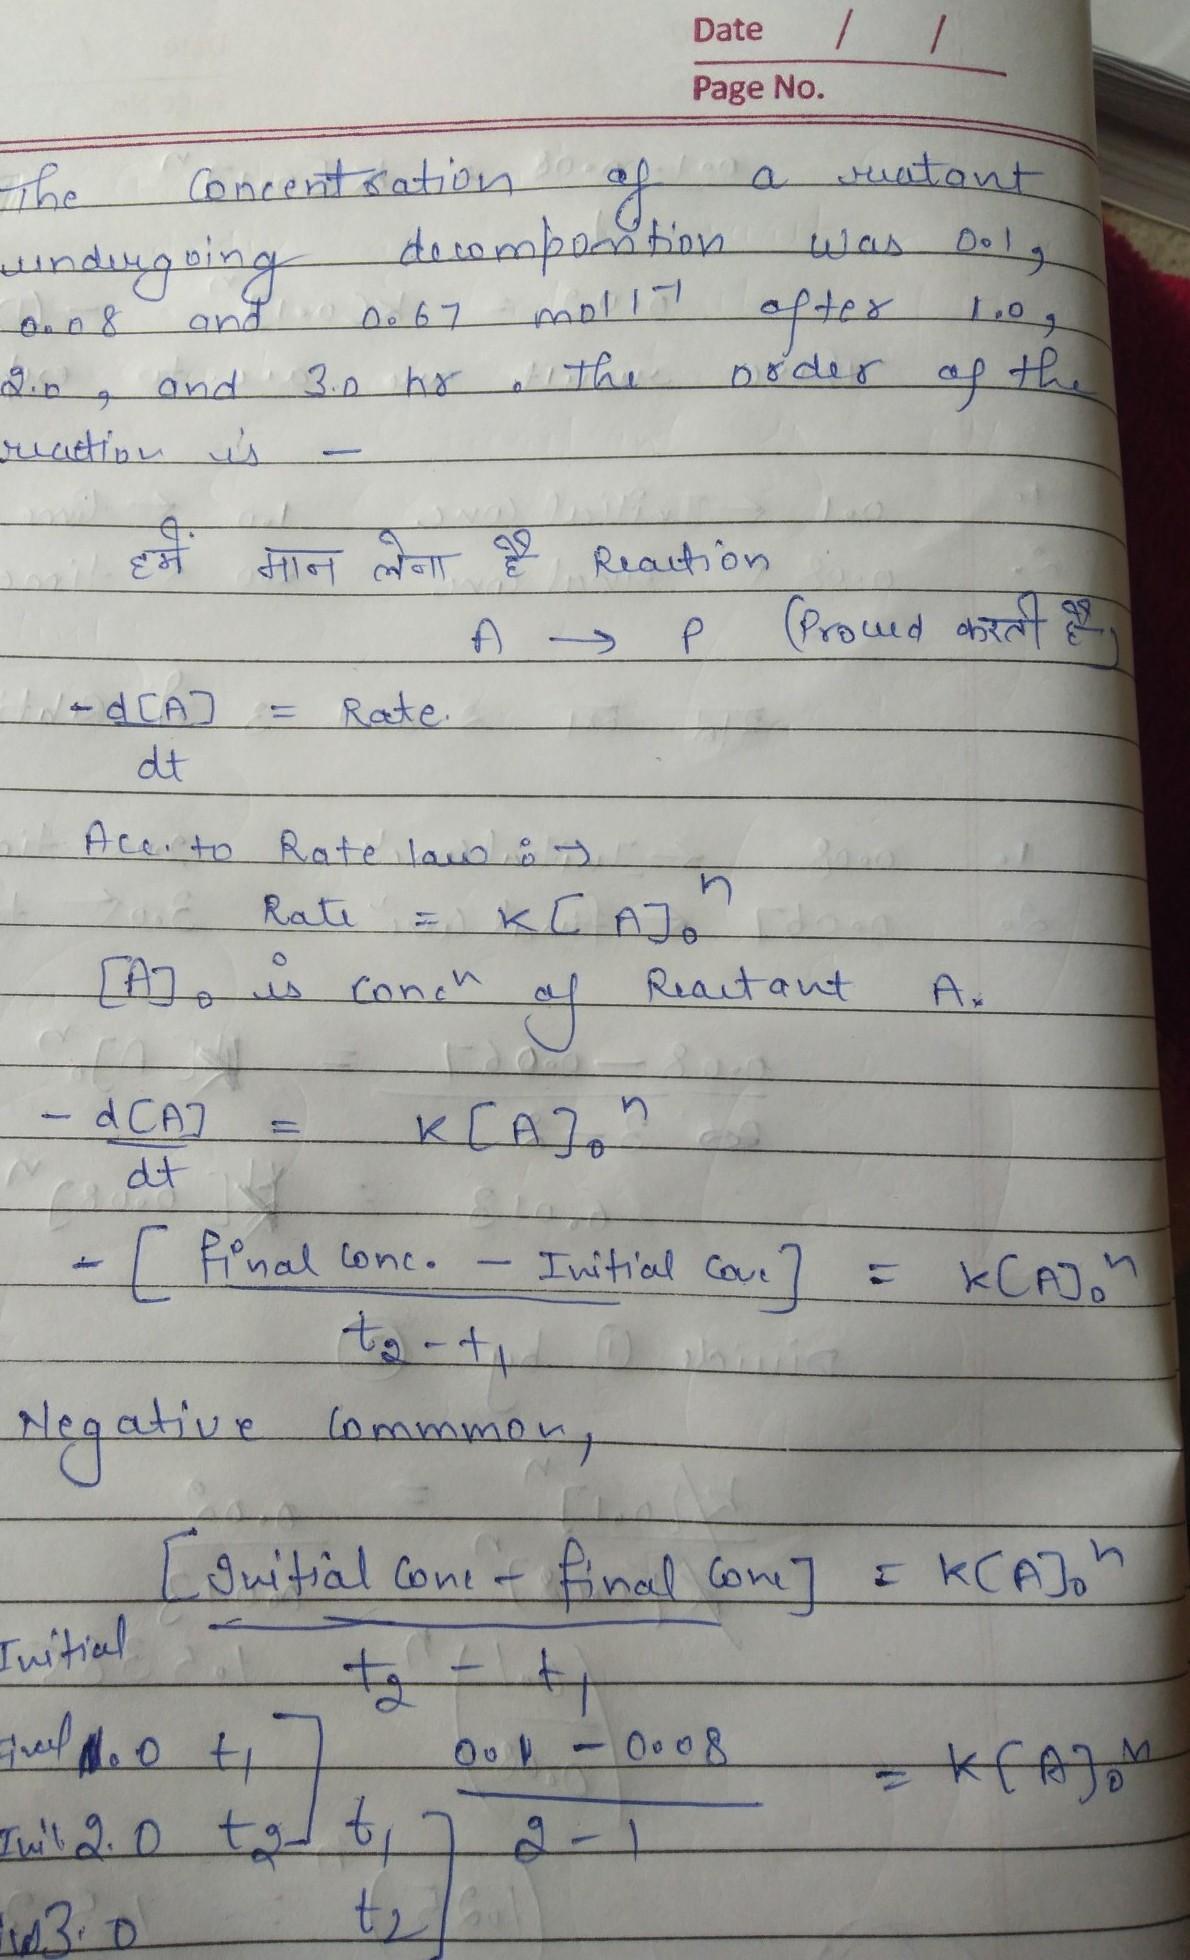 Date / /
Page No.
The Concentration of a reactant
undergoing decomposition was 0.1,
0.08 and 0.67 mol l⁻¹ after 1.0,
2.0, and 3.0 hr. The order of the
reaction is —
हमें मान लेना है Reaction
A → P (Proceed करती है)
-d[A] = Rate.
dt
Acc. to Rate law :→
Rate = K[A]₀ⁿ
[A]₀ is concⁿ of Reactant A.
- d[A] = K[A]₀ⁿ
dt
- [final conc. - Initial conc] = K[A]₀ⁿ
t₂ - t₁
Negative Commmon,
[Initial conc - final conc] = K[A]₀ⁿ
Initial t₂ - t₁
1.0 t₁ 0.1 - 0.08 = K[A]₀ⁿ
2.0 t₂ t₁ 2 - 1
3.0 t₂